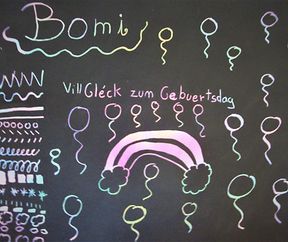 Bomi
Vill Gléck zum Gebuertsdag